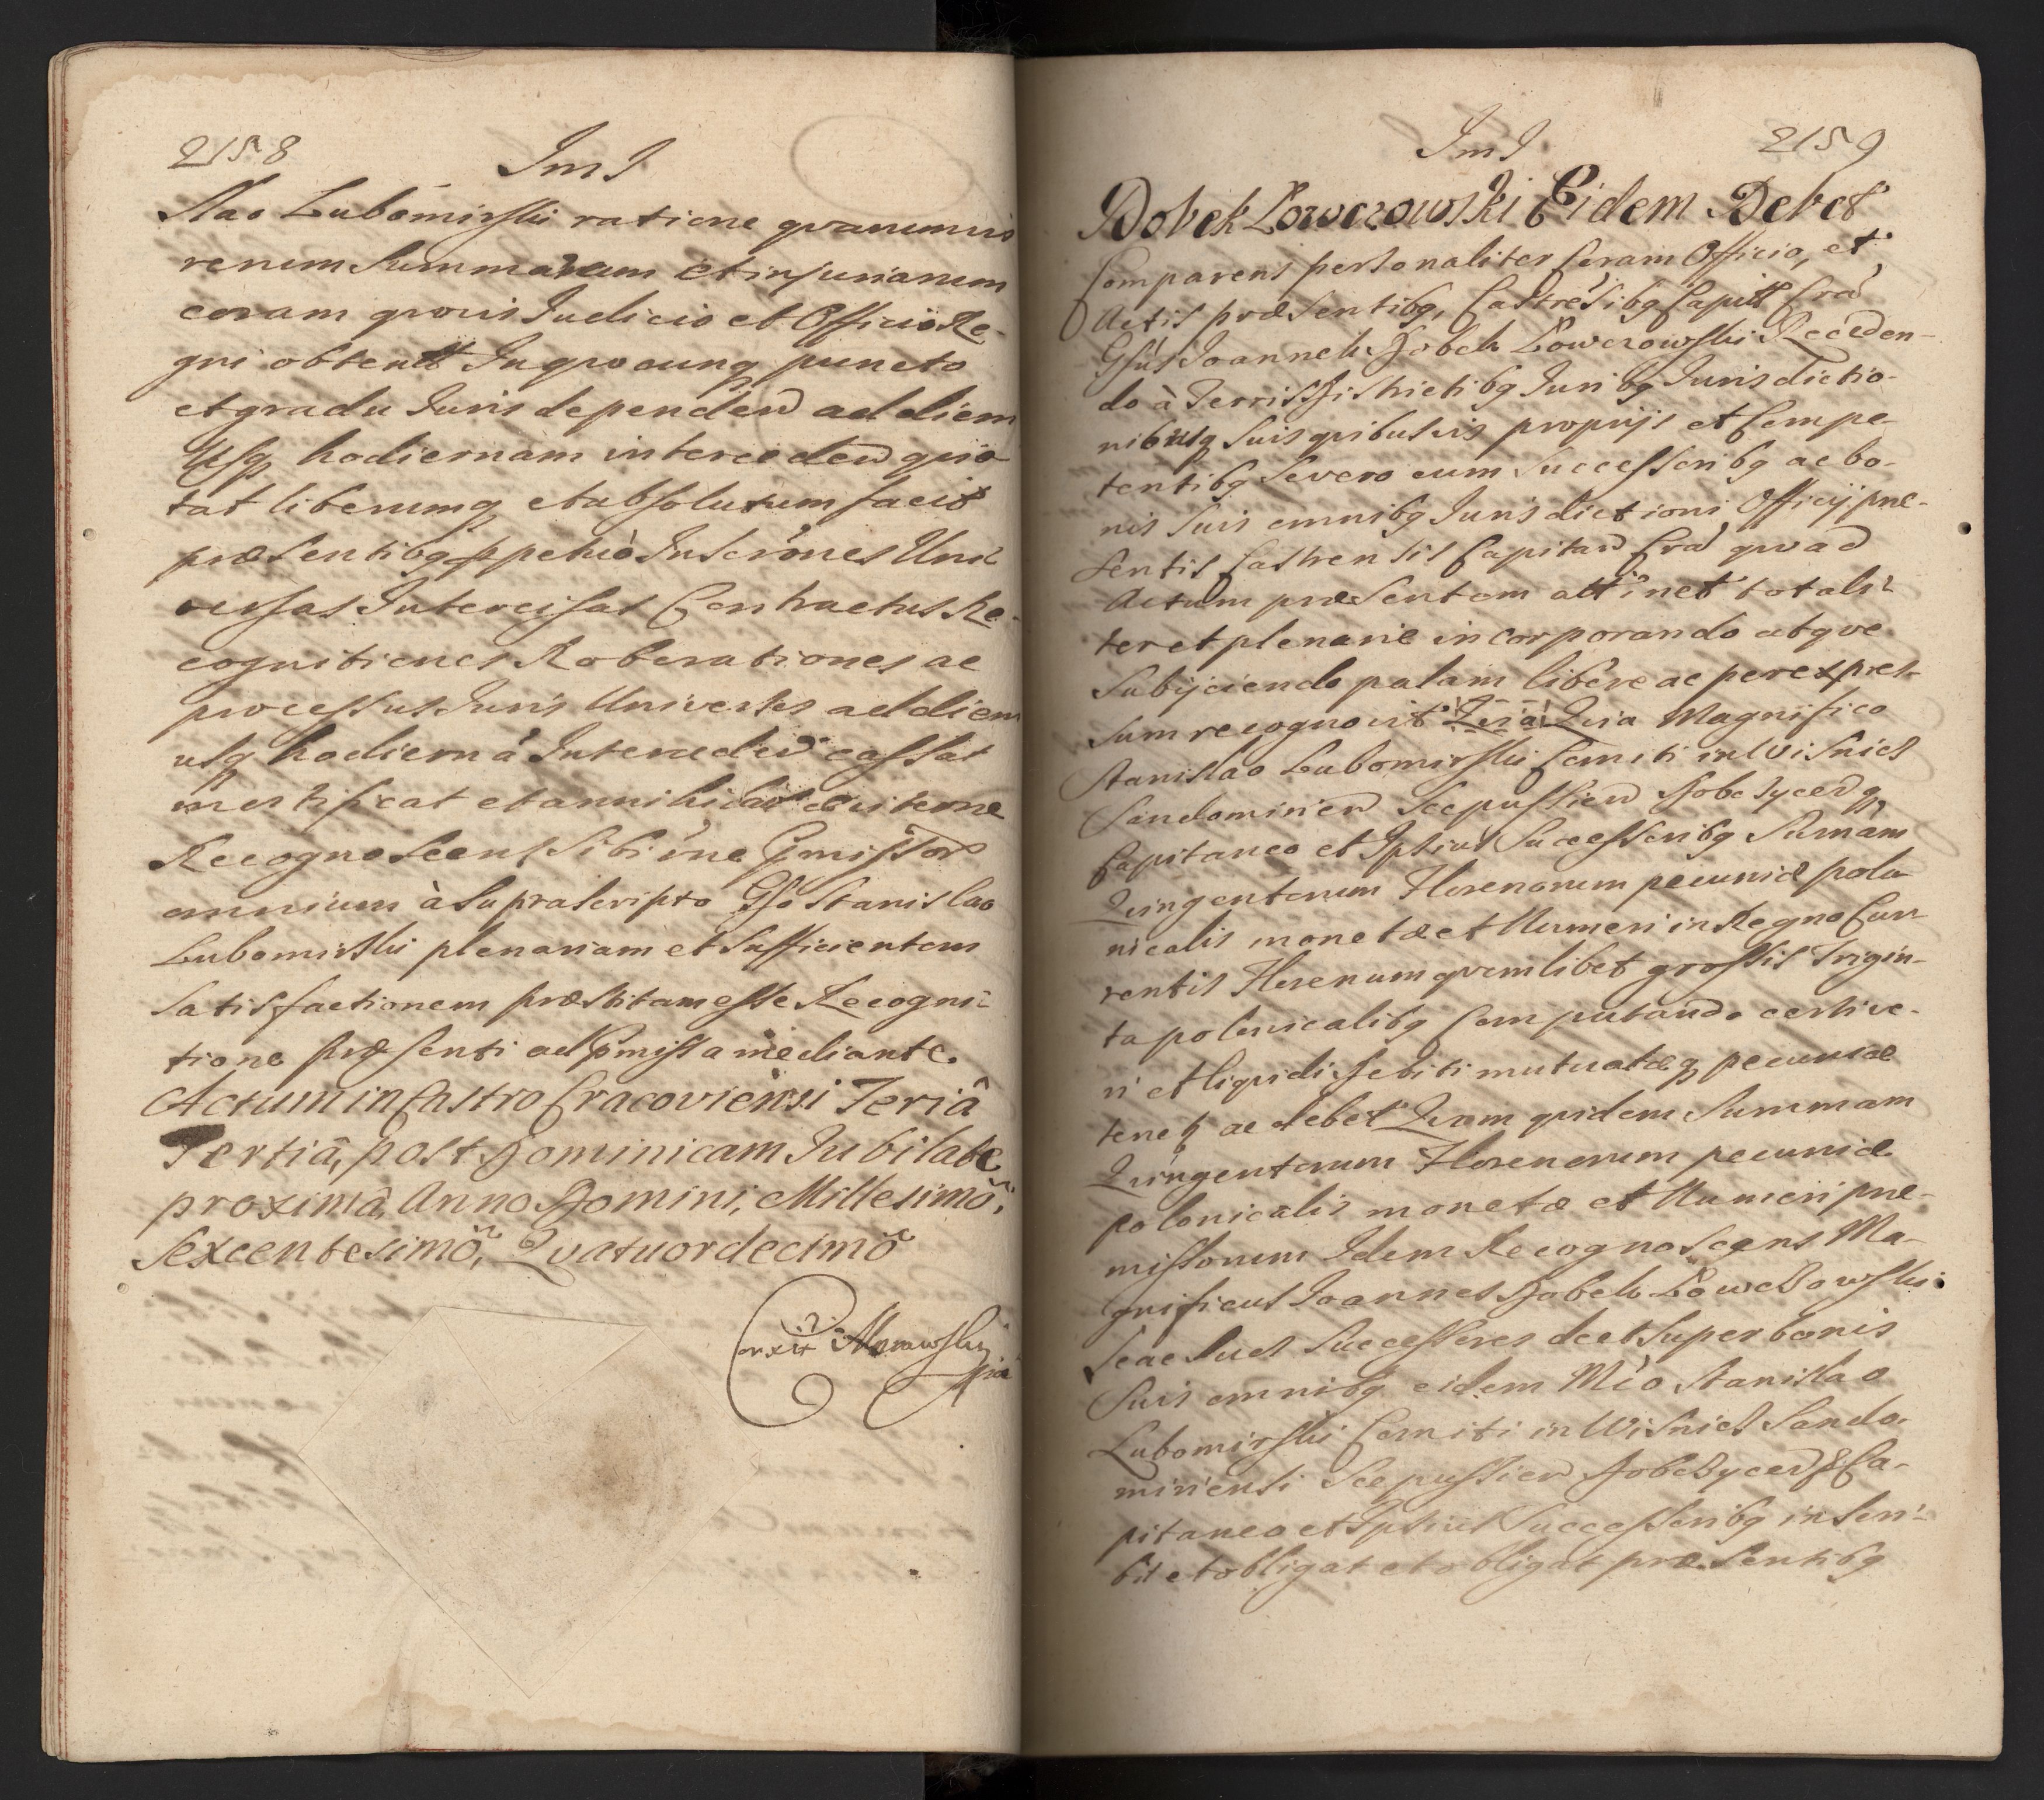 2158
ImI
slao Lubomirski ratione qvarumvis
rerum Summarum et injuriarum
coram qvovis Iudicio et Officio Re-
gni obtent In qvocunq puncto
et gradu Iuris dependen ad diem
Usq hodiernam interceden qvie
tat liberumq et absolutum facit
præsentibq ppetuò Inscrones Uni
versas Intercisas Contractus Re-
cognitiones Roborationes ac
processus Iuris Universos ad diem
usq hodierná Interceden cassat
mortificat et annihilat
Recognoscens sibi íne Pmissor
omnium à Suprascripto Gso Stanislao
Lubomirski plenariam et Sufficientem
Satisfactionem præstitam esse Recogni-
tione præsenti ad Pmissa mediante.
Actum in Castro Cracoviensi Feriâ
Tertiâ, post Dominicam Iubilate
proximâ, Anno Domini, Millesimõ,
Sexcentesimõ, Qvatuordecimõ
Corexit Murawski
mpia
ImI
2159
Dobek Łowczowski Eidem Debet
Comparens personaliter Coram Officio, et
Actis præsentibq, Castrésibq Capitt Cra
Gsus Ioannes Dobek Łowczowski Receden-
do à Terris Districtibq Iuribq Iurisdictio-
nibusq Suis qvibusvis proprijs et Compe-
tentibq Se vero cum Successoribq ac bo-
nis Suis omnibq Iurisdictioni Officij præ-
sentis Castrensis Capitan Cra qvo ad
Actum præsentem attinet totali-
ter et plenarie incorporando atqve
Subijciendo palam libere ac per expres-
sum recognovit Qvia Qvia Magnifico
Stanislao Lubomirski Comiti in Wisnicz
Sandomirien Scepussien Dobczycenq
Capitaneo et Ipsius Successoribq Sumam
Qvingentorum Florenorum pecuniæ polo
nicalis monetæ et Numeri in Regno Cur-
rentis Florenum qvemlibet grossis Trigin-
ta polonicalibq Computando certi ve-
ri et liqvidi Debiti mutuatæq pecuniæ
tenet ac debet Qvam qvidem Summam
Qvingentorum Florenorum pecuniæ
polonicalis monetæ et Numeri præ-
missorum Idem Recognoscens Ma-
gnificus Ioannes Dobek Łowczowski
Se ac Suos Successores de et Super bonis
Suis omnibq eidem Mco Stanislao
Lubomirski Comiti in Wisnicz Sando-
miriensi Scepussien Dobczycen & Ca-
pitaneo et Ipsius Successoribq inscri-
bit et obligat et obligat præsentibq